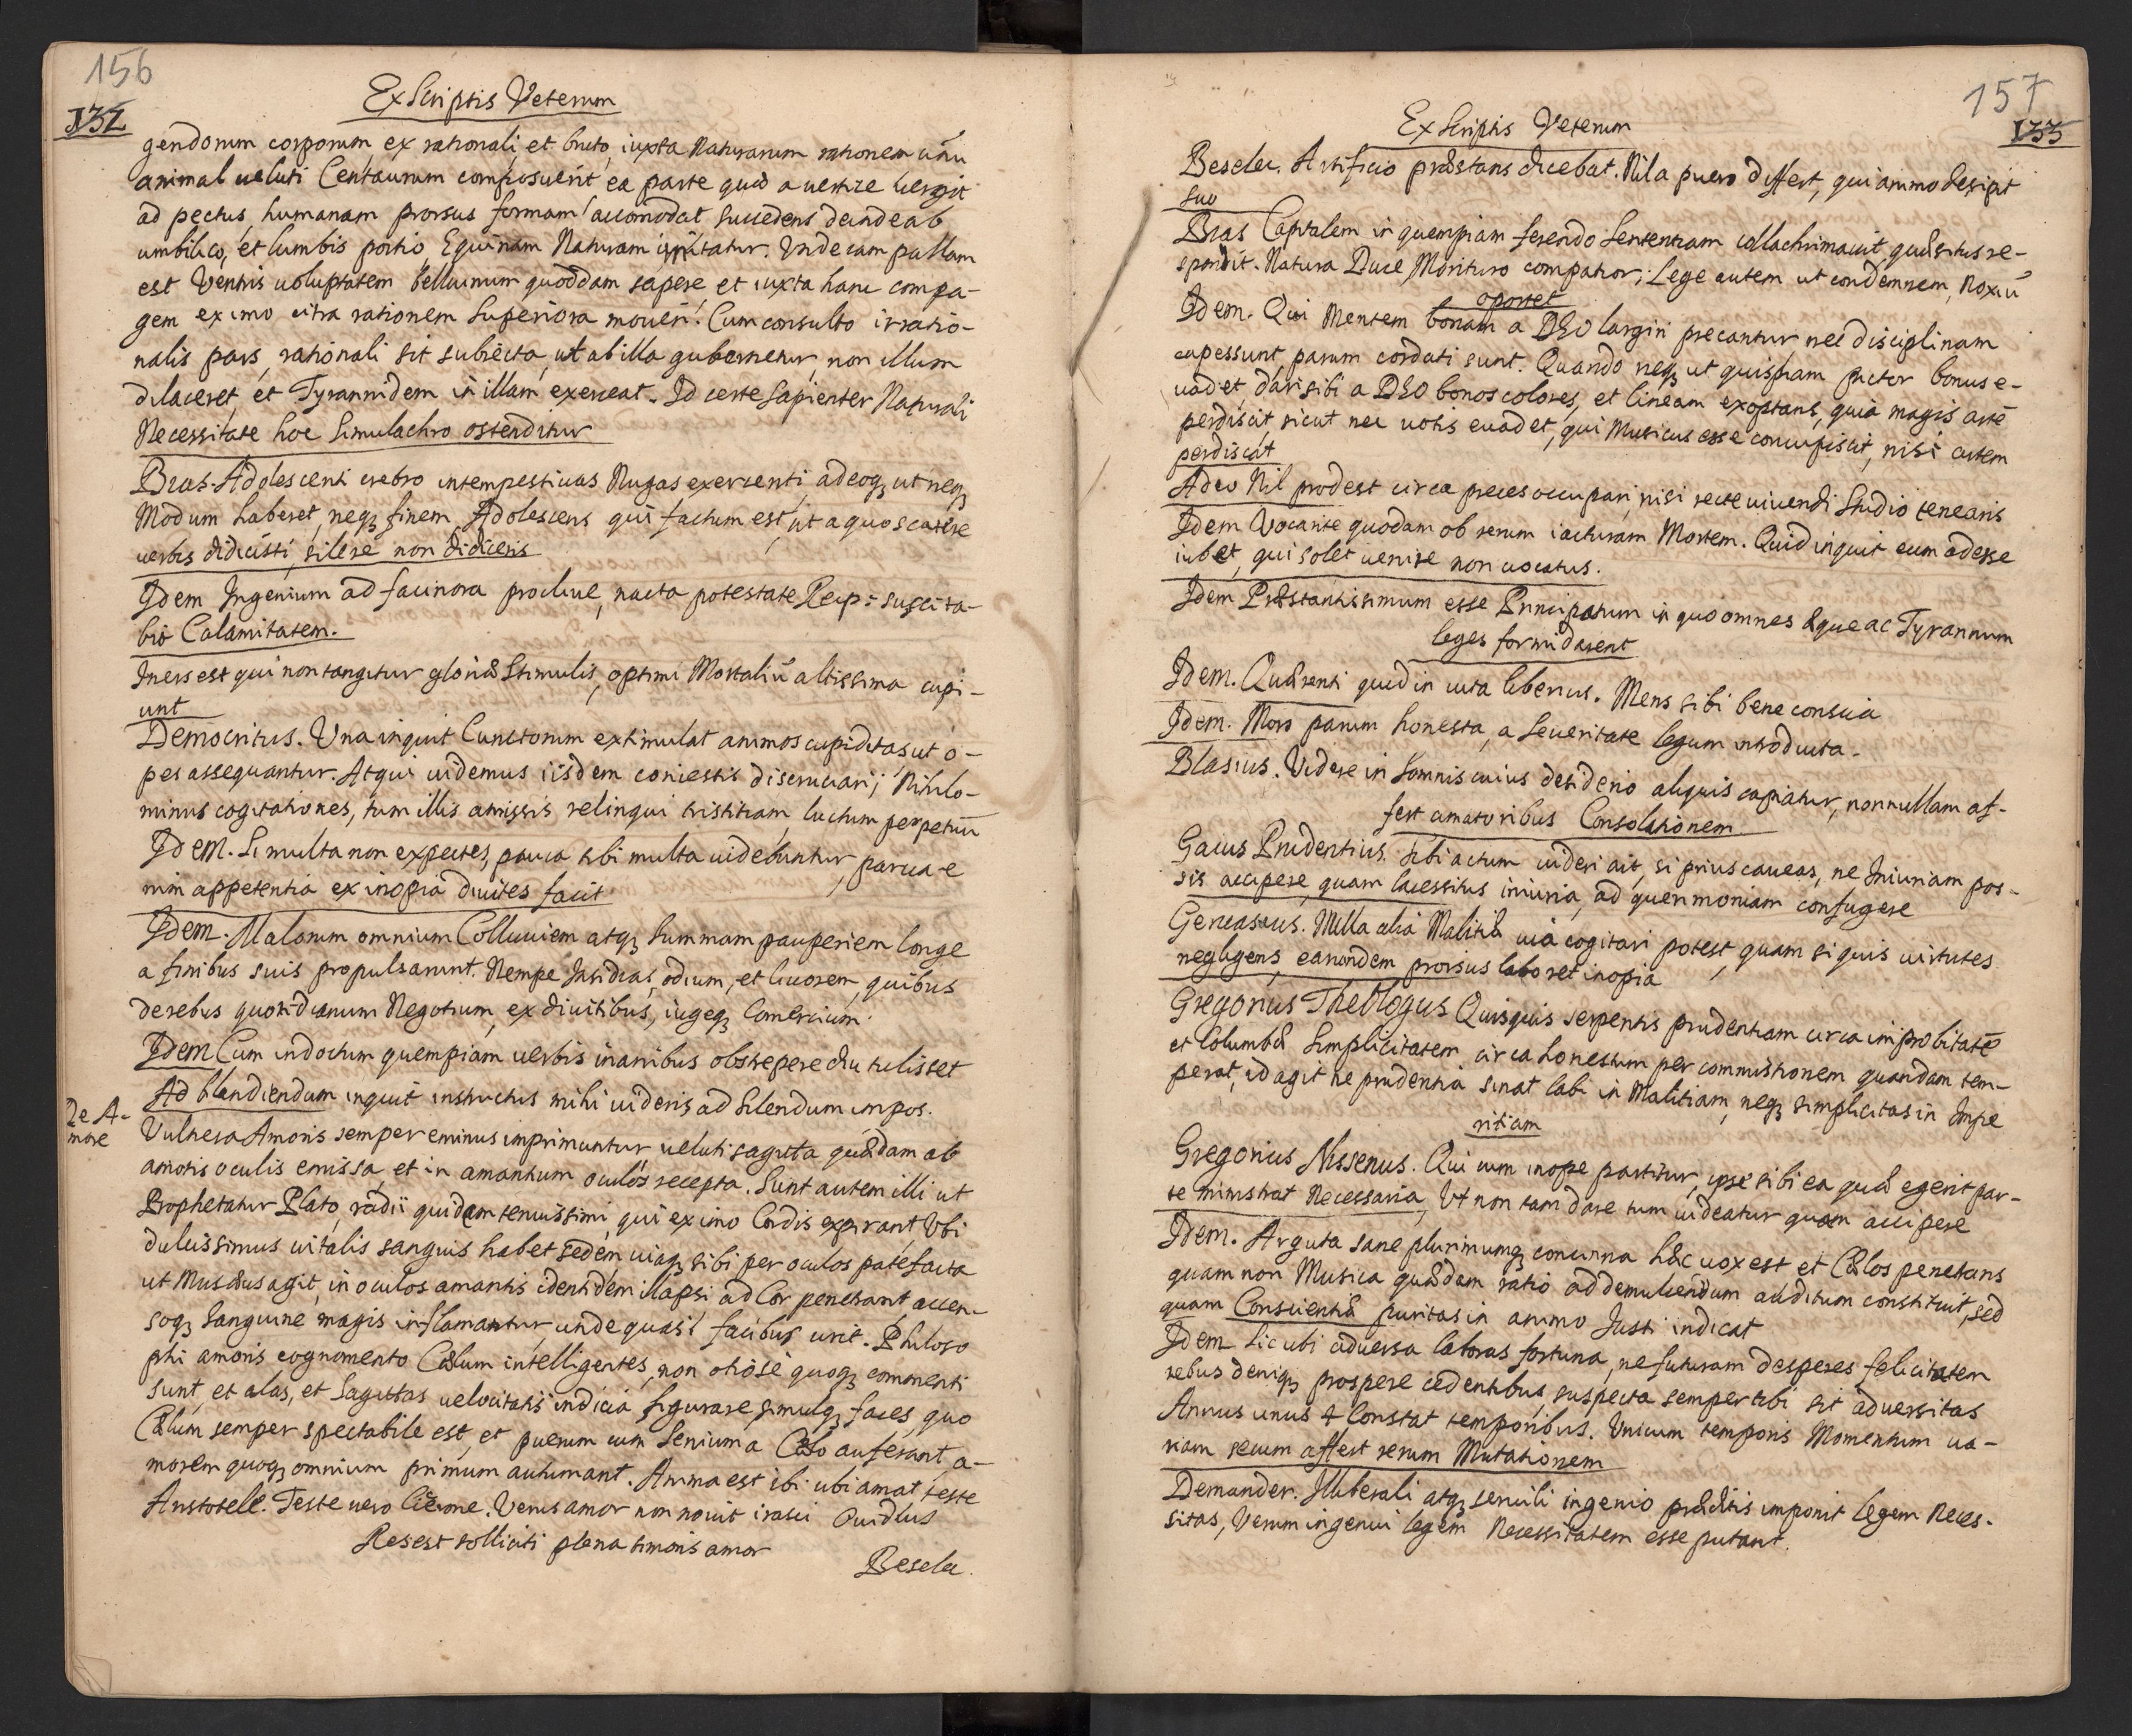 156
132
Ex Scriptis Veterum
gendorum corporum ex rationali et bruto, iuxta Naturarum rationem unū
animal ueluti Centaurum composuerit ea parte quid a uertice uergit
ad pectus, humanam prorsus formam accomodat succedens deinde ab
umbilico, et lumbis portio, Equinam Naturam imitatur. Unde iam pallam
est Ventris uoluptatem belluinum quoddam sapere et iuxta hanc compa-
gem ex imo citra rationem Superiora moueri. Cum consulto irratio-
nalis pars, rationali sit subiecta, ut ab illa gubernetur, non illum
dilaceret, et Tyrannidem in illam exerceat. Id certe sapienter Naturali
Necessitate hoc Simulachro ostenditur
Bias. Adolescenti crebro intempestiuas Nugas exercenti, adeoq; ut neq;
Modum haberet, neq; finem. Adolescens qui factum est, ut a quo scatere
uerbis didicisti, silere non didiceris
Idem Ingenium ad facinora procliue, nacta potestate Reip: suscita-
bit Calamitatem.
Iners est qui non tangitur gloriæ Stimulis, optimi Mortaliū altissima cupi-
unt
Democritus. Una inquit Cunctorum extimulat animos cupiditas ut o-
pes assequantur. Atqui uidemus iisdem coniestis discruciari; Nihilo-
minus cogitationes, tum illis amissis relinqui tristitiam, luctum perpetuū
Idem. Si multa non expectes, pauca tibi multa uidebuntur, parua e-
nim appetentia ex inopia diuites facit
Idem. Malorum omnium Colluuiem atq; Summam pauperiem longe
a finibus suis propulsarunt. Nempe Insidias, odium, et liuorem, quibus
de rebus quotidianum Negotium, ex diuitibus, iugeq; Comercium.
Idem Cum indoctum quempiam uerbis inanibus obstrepere diu tulisset
Ad blandiendum inquit instructus mihi uideris ad silendum impos.
De A-
more
Vulnera Amoris semper eminus imprimuntur ueluti sagitta quædam ab
amotis oculis emissa, et in amantum oculos recepta. Sunt autem illi ut
Prophetatur Plato, radii quidam tenuissimi, qui ex imo Cordis expirant, Ubi
dulcissimus uitalis sanguis habet sedem, uiaq; sibi per oculos patefacta
ut Musæus agit, in oculos amantis identidem illapsi, ad Cor penetrant accen-
soq; Sanguine magis inflamantur, unde quasi facibus urit. Philoso
phi amoris cognomento Cælum intelligentes, non otiose quoq; commenti
sunt, et alas, et Sagittas uelocitatis indicia figurare, simulq; faces, quo
Cælum semper spectabile est, et puerum cum Senium a Cælo auferant, a-
morem quoq; omnium primum autumant. Anima est ibi ubi amat, teste
Aristotele. Teste uero Cicerone. Verus amor non nouit irasci Ouidius
Res est solliciti plena timoris amor
Besela.
157
133
Ex Scriptis Veterum
Besela. Artificio præstans dicebat. Nil a puero differt, qui animo desipit
suo
Bias Capitalem in quempiam ferendo Sententiam collachrimauit, quæsitus re-
spondit. Natura Duce Morituro compatior; Lege autem ut condemnem, Noxiū
oportet
Idem. Qui Mentem bonam a DEO largiri precantur, nec disciplinam
capessunt, parum cordati sunt. Quando neq; ut quispiam pictor bonus e-
uadet, dari sibi a DEO bonos colores, et lineam exoptans, quia magis artē
perdiscit sicut nec uotis euadet, qui Musicus esse concupiscit, nisi artem
perdiscat
Adeo Nil prodest circa preces occupari, nisi recte uiuendi Studio tenearis
Idem Vocante quodam ob rerum iacturam Mortem. Quid inquit eum adesse
iubet, qui solet uenire non uocatus.
Idem Præstantissimum esse Principatum in quo omnes æque ac Tyrannum
leges formidarent
Idem. Quærenti quid in uita liberius. Mens sibi bene conscia
Idem. Mors parum honesta, a Seueritate legum introducta.
Blasius. Videre in Somnis cuius desiderio aliquis capiatur, nonnullam af-
fert amatoribus Consolationem
Gaius Prudentius. Sibi actum uideri ait, si prius caueas, ne Iniuriam pos-
sis accipere, quam lacessitus iniuria, ad querimoniam confugere
Geneasius. Nulla alia Malitiæ uia cogitari potest, quam si quis uirtutes
negligens, earundem prorsus laboret inopia
Gregorius Theologus Quisquis serpentis prudentiam circa improbitatē
et Columbæ Simplicitatem circa honestum per commistionem quandam tem-
perat, id agit ne prudentia sinat labi in Malitiam, neq; simplicitas in Impe
ritiam
Gregorius Nissenus. Qui cum inope partitur, ipse sibi ea quæ egerit par-
te ministrat Necessaria, Ut non tam dare tum uideatur quam accipere
Idem. Arguta sane plurimumq; concinna hæc uox est et Cælos penetrans
quam non Musica quædam ratio ad demulcendum auditum constituit, sed
quam Conscientiæ puritas in animo Iusti indicat
Idem Sicubi aduersa laboras fortuna, ne futuram desperes felicitatem
rebus deniq; prospere cedentibus, suspecta semper tibi sit aduersitas
Annus unus 4 Constat temporibus. Unicum temporis Momentum ua-
riam secum affert rerum Mutationem
Demander. Illiberali atq; seruili ingenio præditis imponit legem Neces-
sitas, Verum ingenui legem Necessitatem esse putant.